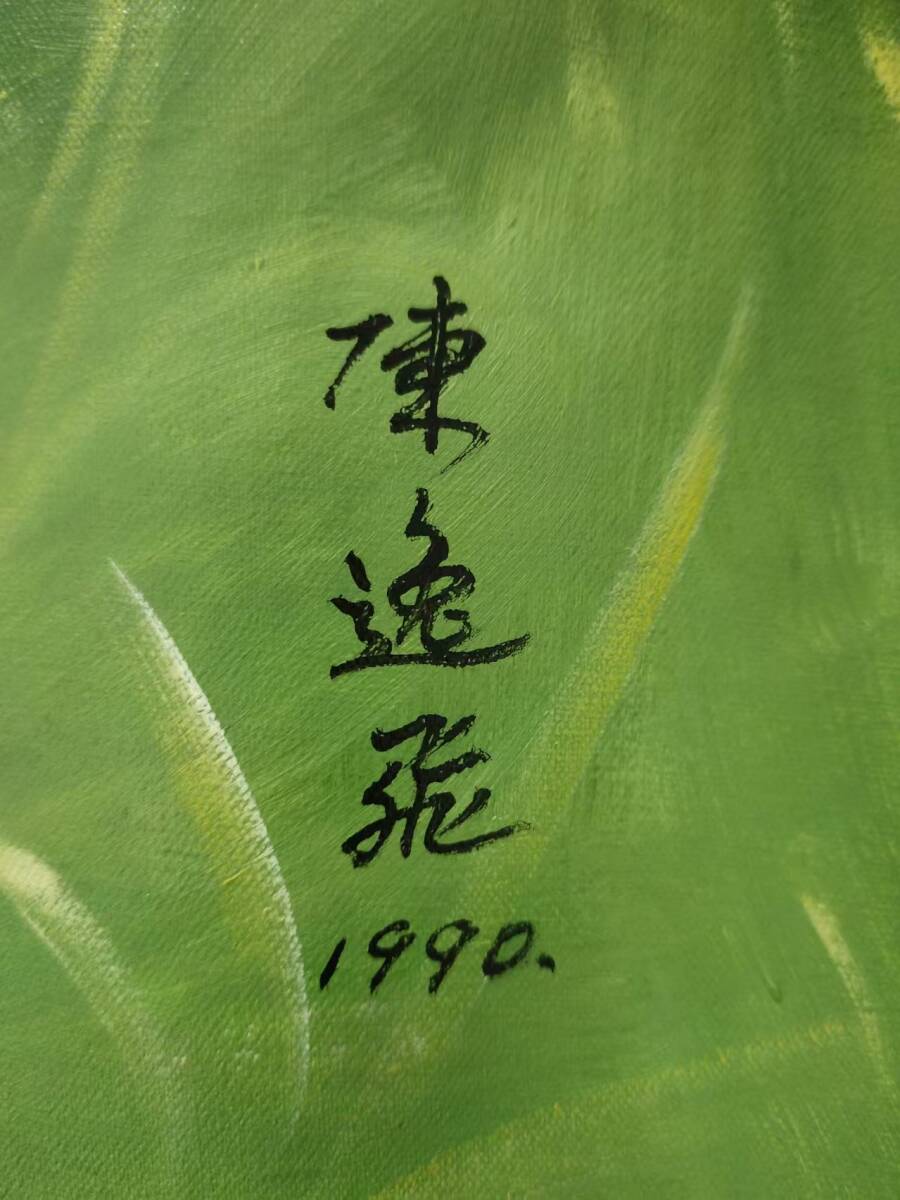 陳逸飛
1990.